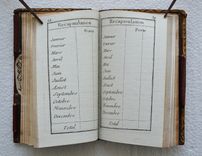 Recapitulation
Janvier
Fevrier
Mars
Avril
Mai
Juin
Juillet
Aoust
Septembre
Octobre
Novembre
Decembre
Total
Recapitulation
Janvier
Fevrier
Mars
Avril
Mai
Juin
Juillet
Aoust
Septembre
Octobre
Novembre
Decembre
Total